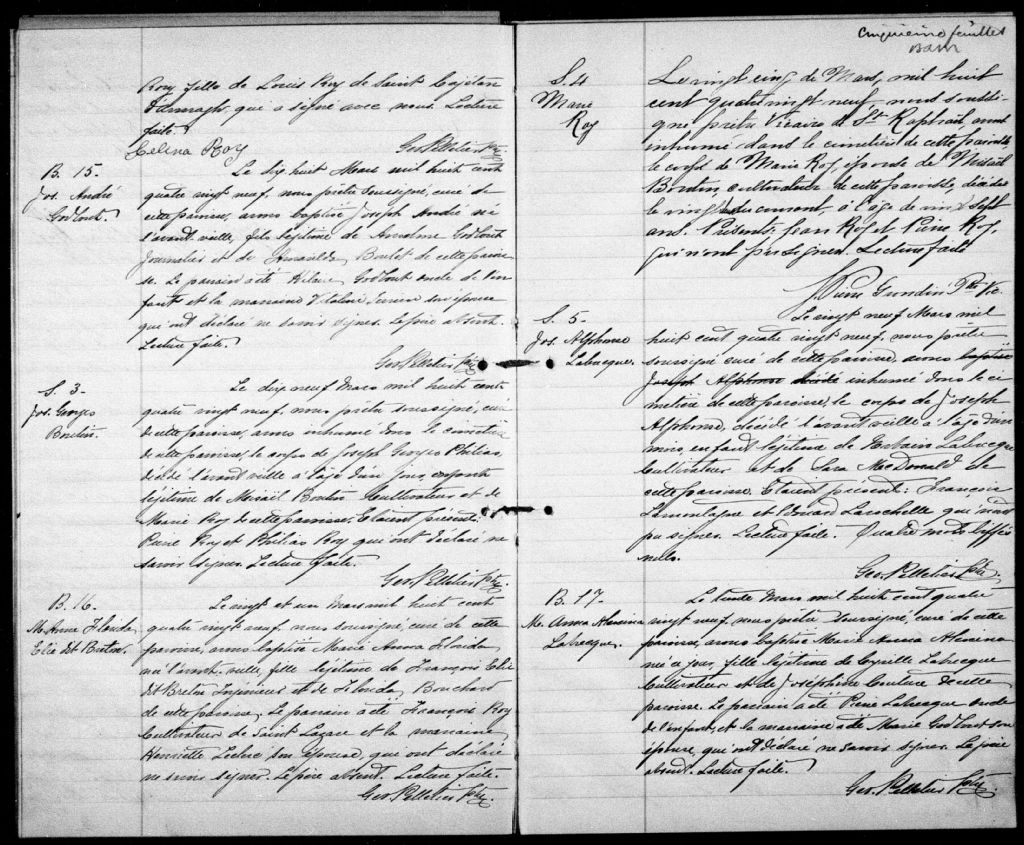 Roy fille de Louis Roy de Saint Cajétan
d'Armagh, qui a signé avec nous. Lecture
faite.
Celina Roy
Geo. Pelletier Ptre
B. 15.
Jos. André
Godbout.
Le dix huit Mars mil huit cent
quatre vingt neuf, nous prêtre soussigné, curé de
cette paroisse, avons baptisé Joseph André né
l'avant veille, fils légitime de Anselme Godbout
Journalier et de Boulet de cette parois-
se. Le parrain a été Hilaire Godbout oncle de l'en-
fant et la marraine Vitaline son épouse
qui ont déclaré ne savoir signer. Le père absent.
Lecture faite.
Geo. Pelletier Ptre
S. 3-
Jos. Georges
Boutin.
Le dix neuf Mars mil huit cent
quatre vingt neuf, nous prêtre soussigné, curé
de cette paroisse, avons inhumé dans le cimetière
de cette paroisse, le corps de Joseph Georges Philias,
décédé l'avant veille à l'âge d'un jour, enfant
légitime de Misaël Boutin Cultivateur et de
Marie Roy de cette paroisse. Etaient présent:
Pierre Roy et Philias Roy qui ont déclaré ne
savoir signer. Lecture faite.
Geo. Pelletier Ptre.
B. 16.
M. Anna Florida
Elie dit Breton.
Le vingt et un Mars mil huit cent
quatre vingt neuf, nous soussigné, curé de cette
paroisse, avons baptisé Marie Anna Florida,
née l'avant-veille, fille légitime de François Elie
dit Breton Ingénieur et de Florida Bouchard
de cette paroisse. Le parrain a été François Roy
Cultivateur de Saint Lazare et la marraine
Henriette Leclerc son épouse, qui ont déclaré
ne savoir signer. Le père absent. Lecture faite.
Geo. Pelletier Ptre
Cinquième feuillet
S. 4
Marie
Roy
Le vingt cinq de Mars, mil huit
cent quatre vingt neuf nous soussi-
gné prêtre Vicaire de St. Raphaël avons
inhumé dans le cimetière de cette paroisse
le corps de Marie Roy, épouse de Misaël
Boutin cultivateur de cette paroisse, décédée
le vingt du courant, à l'âge de vingt sept
ans. Présents: Jean Roy et Pierre Roy,
qui n'ont pu signer. Lecture faite
J. Pierre Grondin Ptre Vic.
S. 5-
Jos. Alphonse
Labrecque.
Le vingt neuf Mars mil
huit cent quatre vingt neuf, nous prêtre
soussigné curé de cette paroisse, avons baptisé
Joseph Alphonse décédé inhumé dans le ci-
metière de cette paroisse, le corps de Joseph
Alphonse, décédé l'avant veille à l'âge d'un
mois, enfant légitime de Labrecque
Cultivateur et de Sara MacDonald de
cette paroisse. Etaient présent: François
Lamontagne et Edouard Larochelle qui n'ont
pu signer. Lecture faite. Quatre mots biffés
nuls.
Geo. Pelletier Ptre.
B. 17-
M. Anna Alexina
Labrecque.
Le trente Mars mil huit cent quatre
vingt neuf, nous prêtre soussigné, curé de cette
paroisse, avons baptisé Marie Anna Alexina
née ce jour, fille légitime de Cyrille Labrecque
Cultivateur et de Joséphine Couture de cette
paroisse. Le parrain a été Pierre Labrecque oncle
de l'enfant, et la marraine a été Marie Godbout son
épouse, qui ont déclaré ne savoir signer. Le père
absent. Lecture faite.
Geo. Pelletier Ptre.